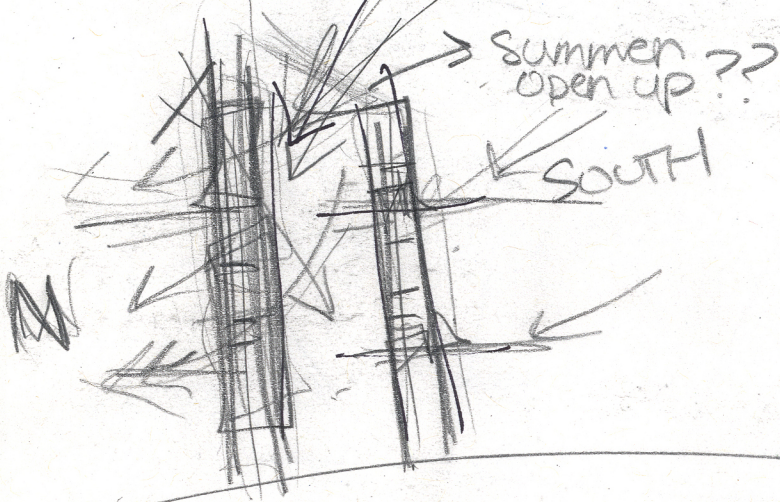 Summer
open up ??
SOUTH
N